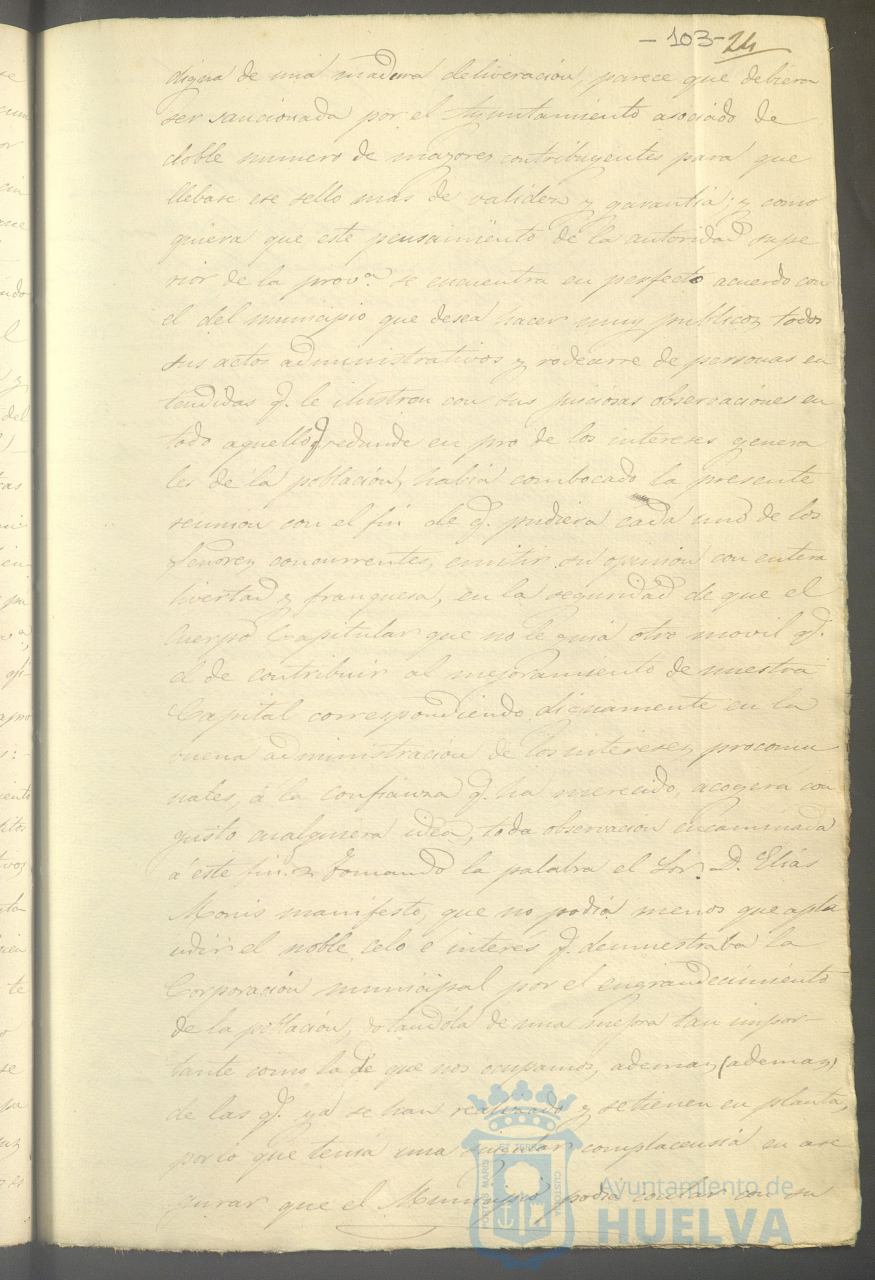 - 103 - 24
digna de una madura deliveración, parece que debiera
ser sancionada por el Ayuntamiento asociado de
doble numero de mayores contribuyentes para que
llebase ese sello mas de validez y garantia; y como
quiera que este pensamiento de la autoridad supe
rior de la prov.ª se encuentra en perfecto acuerdo con
el del municipio que desea hacer muy publicos todos
sus actos administrativos y rodearse de personas en
tendidas q.e le ilustren con sus juiciosas observaciones en
todo aquello q.e redunde en pro de los intereses genera
les de la población, habia combocado la presente
reunion con el fin de q.e pudiera cada uno de los
Señores concurrentes, emitir su opinion con entera
livertad y franquesa, en la seguridad de que el
Cuerpo Capitular que no le guia otro movil q.e
el de contribuir al mejoramiento de nuestra
Capital correspondiendo dignamente en la
buena administración de los intereses procomu
nales, á la confianza q.e ha merecido, acogerá con
gusto cualquiera idea, toda observacion encaminada
á este fin. Tomando la palabra el Sor. D. Elias
Monis manifesto, que no podia menos que apla
udir el noble celo é interés q.e demuestraba la
Corporación municipal por el engrandecimiento
de la poblacion, dotandola de una mejora tan impor-
tante como la de que nos ocupamos, ademas, (ademas)
de las q.e ya se han realizado y se tienen en planta,
por lo que tenia una singular complacensia en ase
gurar que el Municipio podia contar con su
PORTUS MARIS ET TERRAE CUSTODIA
Ayuntamiento de
HUELVA